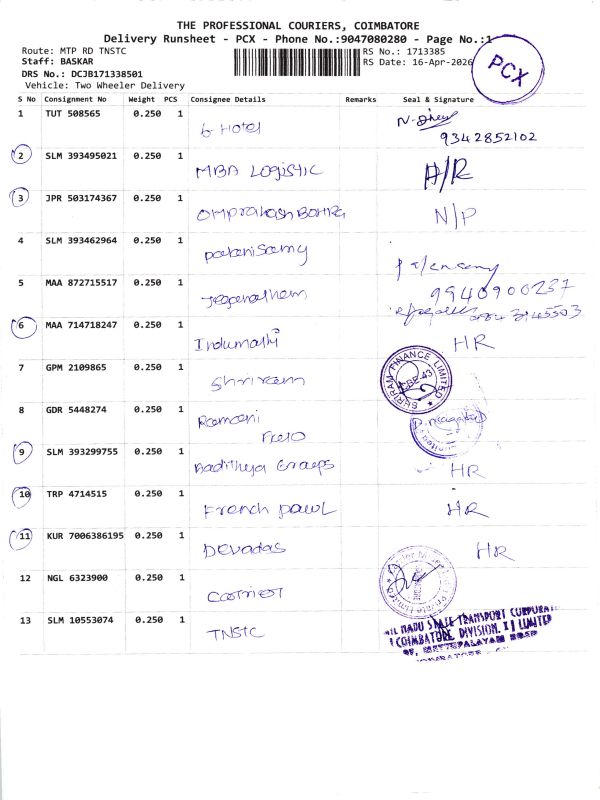 THE PROFESSIONAL COURIERS, COIMBATORE
Delivery Runsheet - PCX - Phone No.:9047080280 - Page No.:1
Route: MTP RD TNSTC
RS No.: 1713385
Staff: BASKAR
RS Date: 16-Apr-2026
DRS No.: DCJB171338501
Vehicle: Two Wheeler Delivery
PCX
S No Consignment No Weight PCS Consignee Details Remarks Seal & Signature
1 TUT 508565 0.250 1 Hotel
9342852102
2 SLM 393495021 0.250 1 MBA Logistic
3 JPR 503174367 0.250 1 N/P
4 SLM 393462964 0.250 1 palanisamy
5 MAA 872715517 0.250 1 Jeganathem
9940900237
6 MAA 714718247 0.250 1 Indumathi HR
7 GPM 2109865 0.250 1 Shriram
SHRIRAM FINANCE LIMITED
CBE-43
8 GDR 5448274 0.250 1 Ramani
9 SLM 393299755 0.250 1 Aadithya Groups HR
10 TRP 4714515 0.250 1 French pawL HR
11 KUR 7006386195 0.250 1 Devadas HR
12 NGL 6323900 0.250 1
Private Limited
13 SLM 10553074 0.250 1 TNSTC
NADU STATE TRANSPORT CORPORA
COIMBATORE DIVISION. I] LIMITED
METTUPALAYAM ROAD